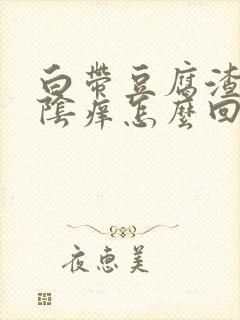 白帶豆腐渣
陰癢怎麼回
夜惠美